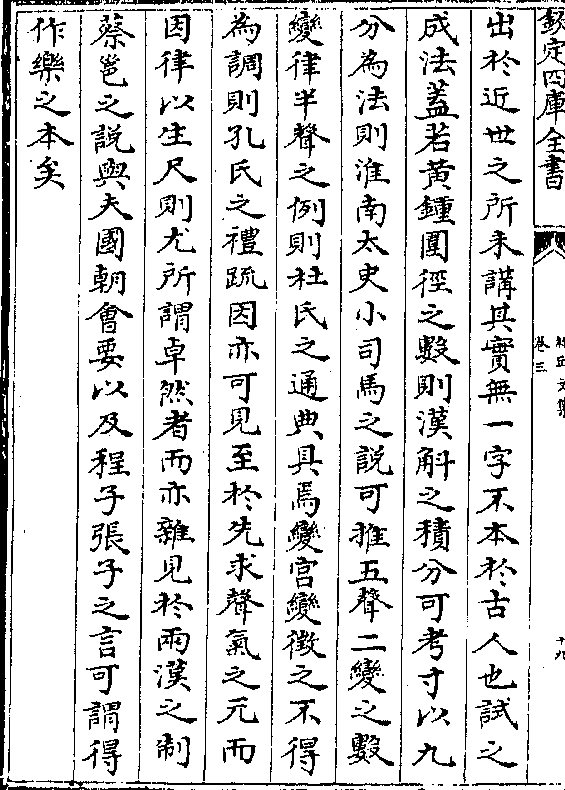 欽定四庫全書
文集
卷三
十九
出於近世之所未講其實無一字不本於古人也試之
成法蓋若黄鍾圍徑之數則漢斛之積分可考寸以九
分為法則淮南太史小司馬之説可推五聲二變之數
變律半聲之例則杜氏之通典具焉變宫變徴之不得
為調則孔氏之禮疏因亦可見至於先求聲氣之元而
因律以生尺則尤所謂卓然者而亦雜見於兩漢之制
蔡邕之説與夫國朝會要以及程子張子之言可謂得
作樂之本矣